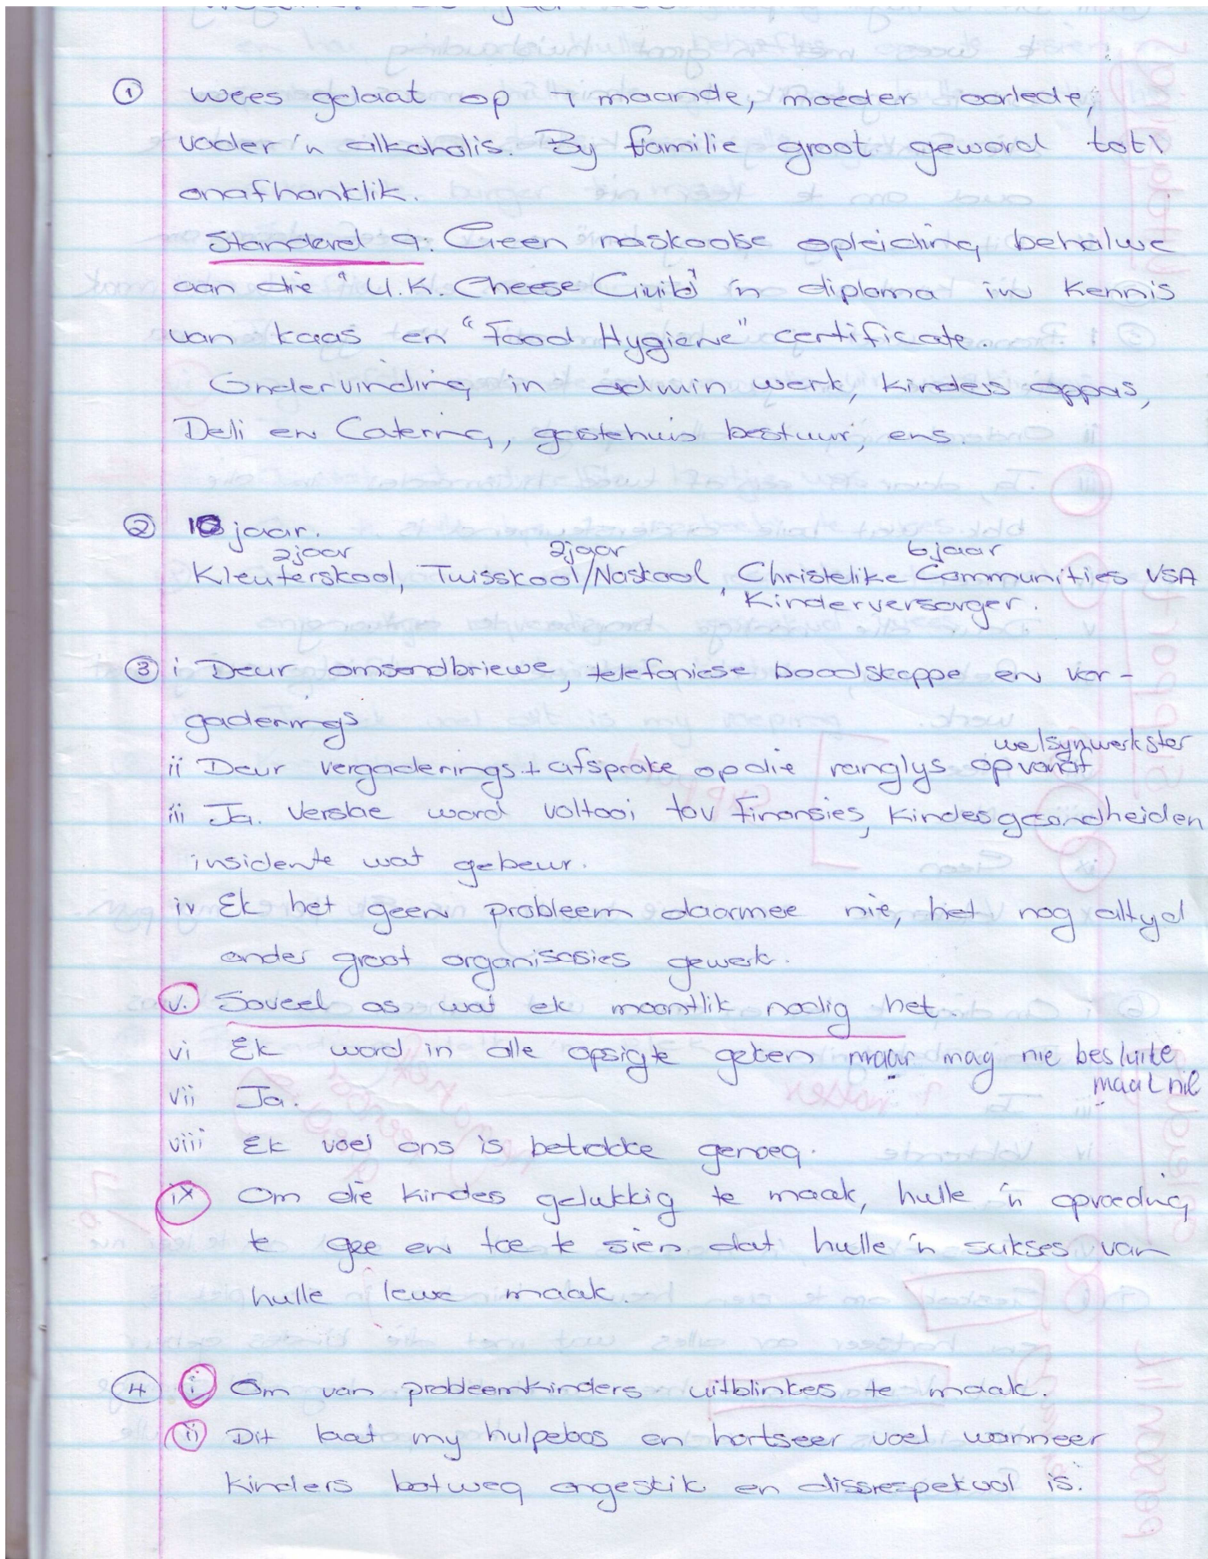 ① Wees gelaat op 7 maande, moeder oorlede,
vader 'n alkoholis. By familie groot geword tot
onafhanklik.
Standerd 9. Geen naskoolse opleiding behalwe
aan die "U.K. Cheese Guild" 'n diploma in kennis
van kaas en "Food Hygiene" certificate.
Ondervinding in admin werk, kinders oppas,
Deli en Catering, gastehuis bestuur, ens.
② 10 jaar.
2jaar 2jaar 6jaar
Kleuterskool, Tuisskool/Naskool, Christelike Communities VSA
Kinderversorger.
③ i Deur omsendbriewe, telefoniese boodskappe en ver-
gaderings
welsynwerkster
ii Deur vergaderings + afsprake op die ranglys op vanaf
iii Ja. Verslae word voltooi tov Finansies, Kindes gesondheiden
insidente wat gebeur.
iv Ek het geen probleem daarmee nie, het nog altyd
onder groot organisasies gewerk.
v. Soveel as wat ek moontlik nodig het.
vi Ek word in alle opsigte geken maar mag nie besluite
maak nie
vii Ja.
viii Ek voel ons is betrokke genoeg.
ix Om die kindes gelukkig te maak, hulle 'n opvoeding
te gee en toe te sien dat hulle 'n sukses van
hulle lewe maak.
④ i Om van probleemkinders uitblinkes te maak.
ii Dit laat my hulpeloos en hartseer voel wanneer
kinders botweg ongeskik en disrespekvol is.